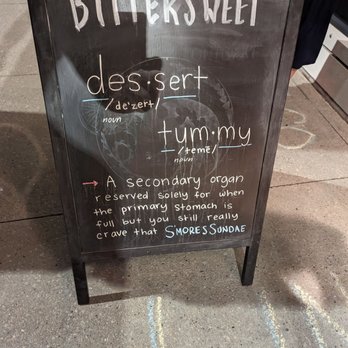 BITTERSWEET
des·sert
/de'zert/
noun
tum·my
/temē/
noun
→ A secondary organ
reserved solely for when
the primary stomach is
full but you still really
crave that SMORES SUNDAE